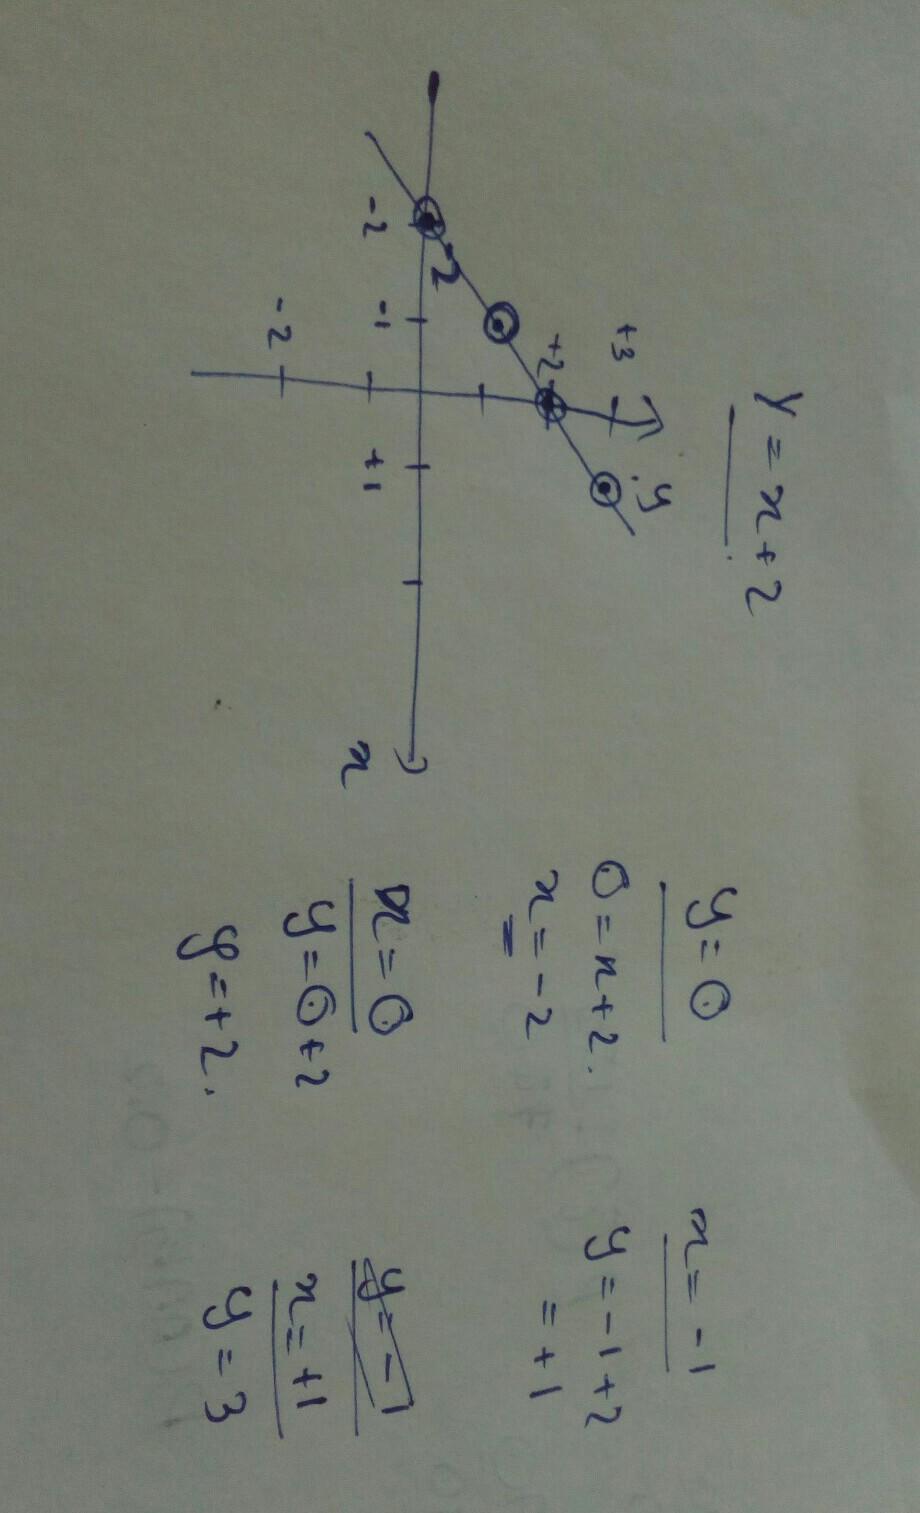 y = x + 2
+3
y
+2
-2
-1
+1
-2
2
x
y = 0
0 = x + 2.
x = -2
x = 0
y = 0 + 2
y = +2.
x = -1
y = -1 + 2
= +1
y = -1
x = +1
y = 3